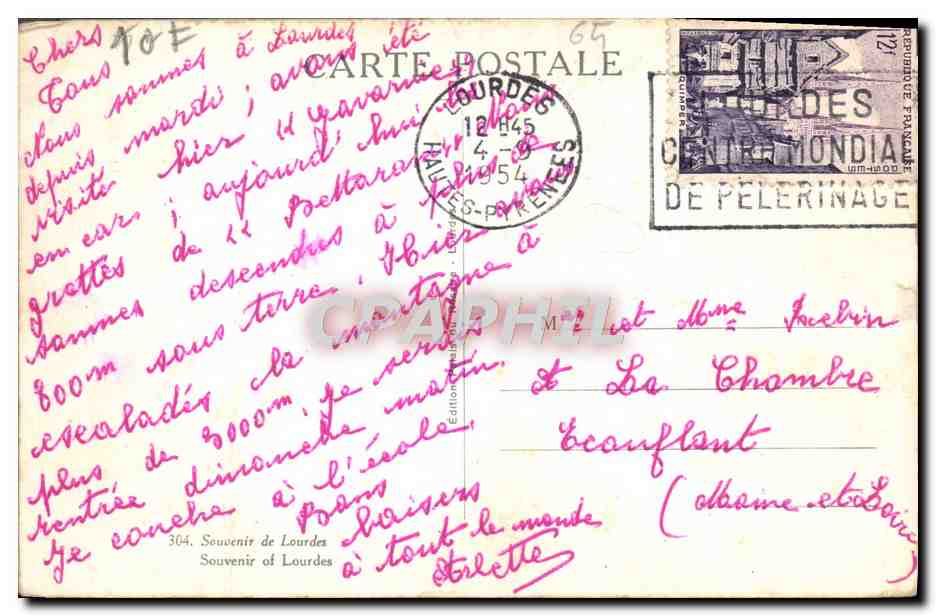 10 F
65
CARTE POSTALE
Chers Tous
Nous sommes à Lourdes
depuis mardi ; avons été
visité hier " Gavarnie "
en car ; aujourd'hui les
grottes de " Bettaram " Nous
sommes descendus à plus de
800m sous terre. Hier avons
escaladés la montagne à
plus de 3000m. Je serais
rentrée dimanche matin.
Je couche à l'école.
Bons baisers
à tout le monde
Arlette
304. Souvenir de Lourdes
Souvenir of Lourdes
Editions Palais du Rosaire - Lourdes
LOURDES
12 H45
4 - 9
1954
HAUTES-PYRENEES
LOURDES
CENTRE MONDIA
DE PELERINAGE
12f
REPUBLIQUE FRANÇAISE
QUIMPER
CPARPHIL
Mr et Mme
A La Chambre
Ecouflant
(Maine et Loire)